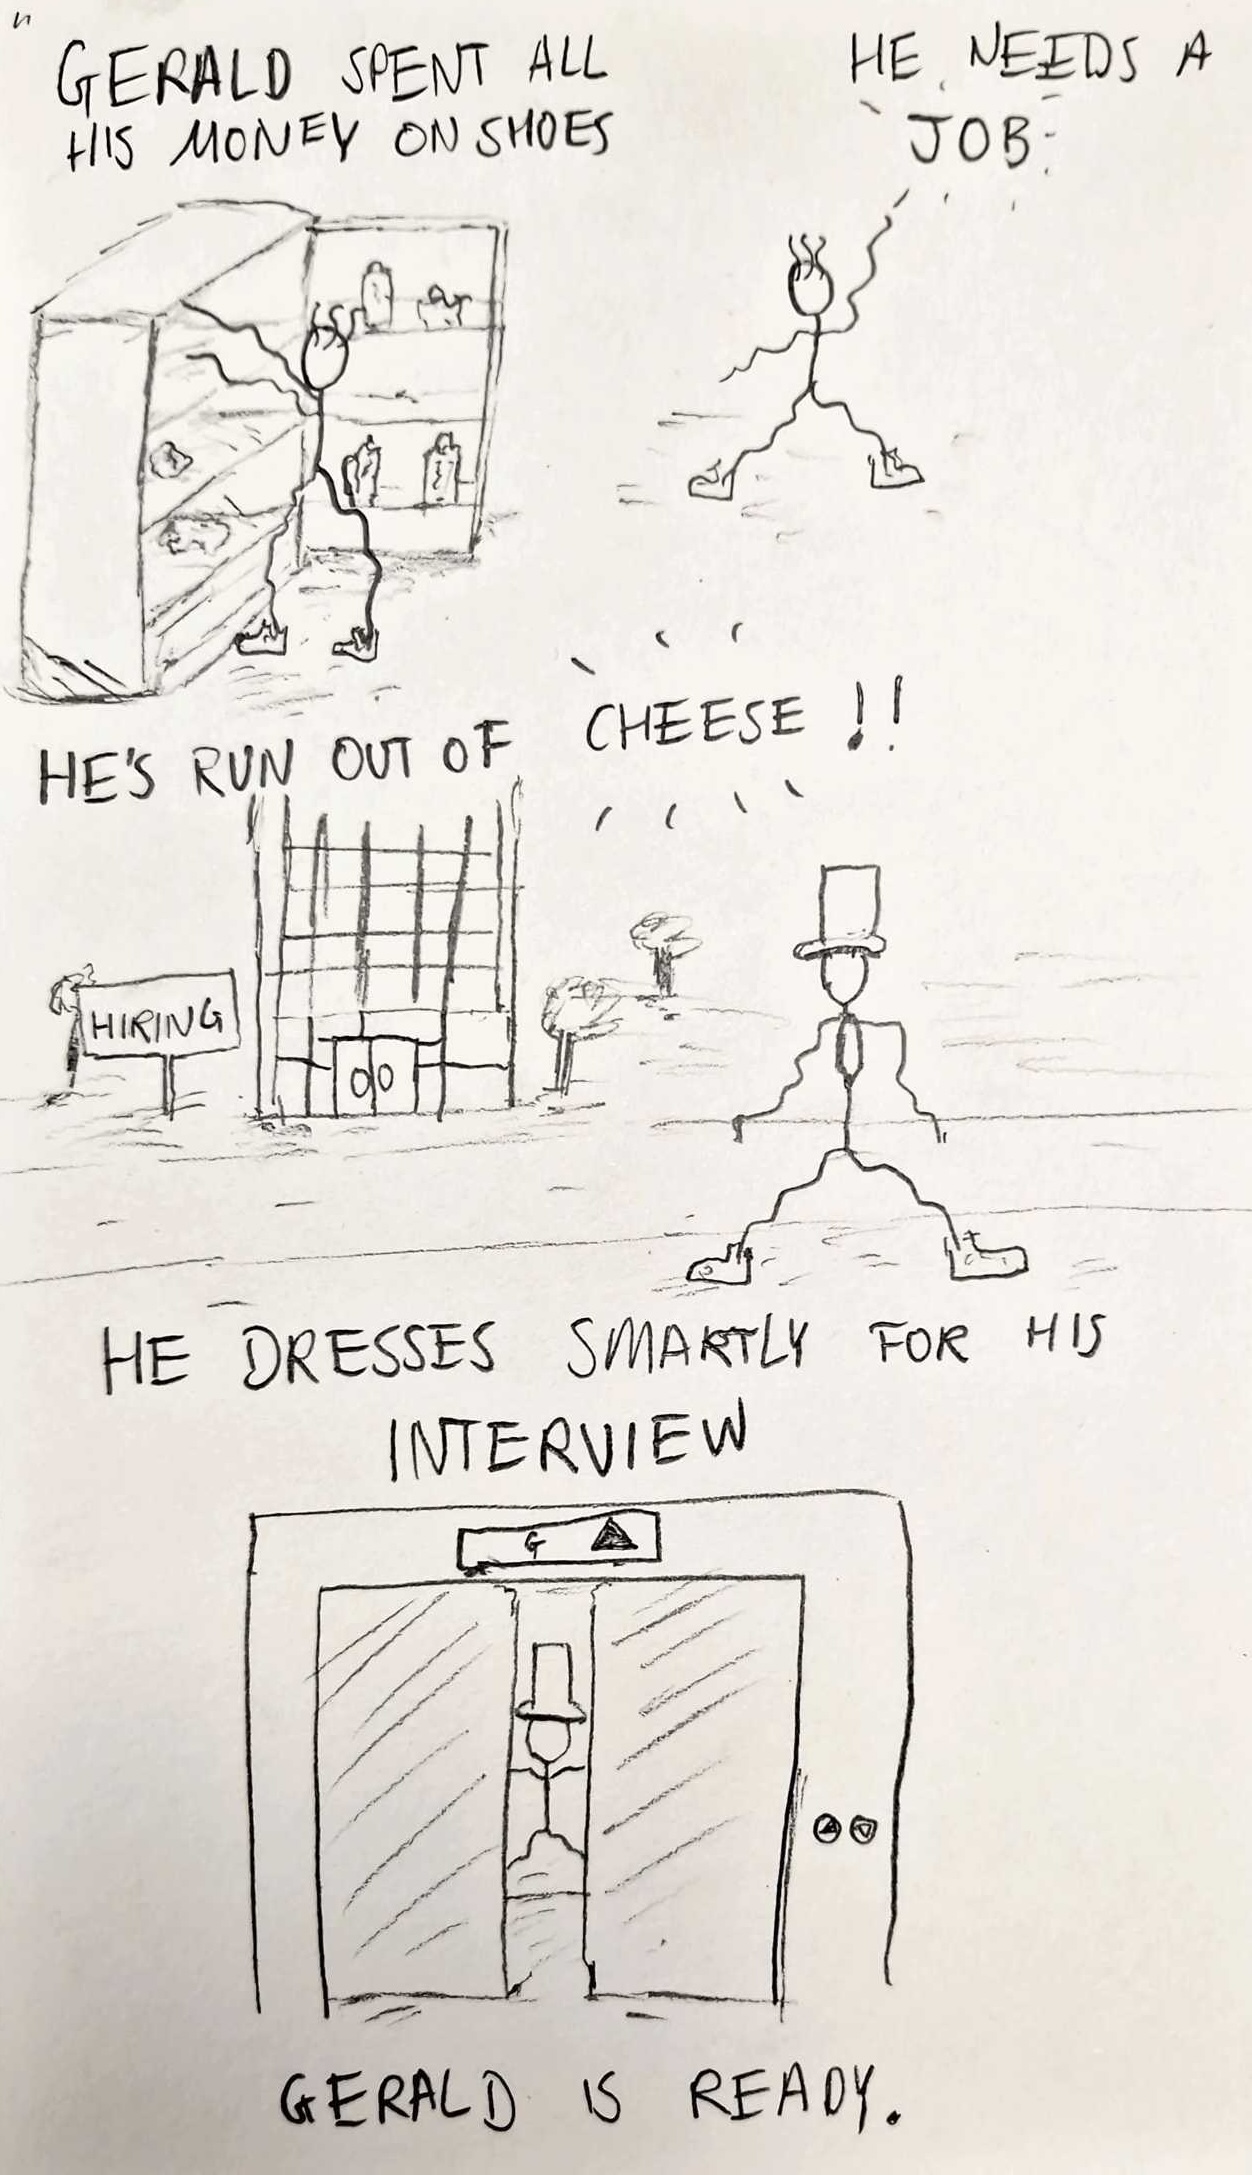 GERALD SPENT ALL
HIS MONEY ON SHOES
HE NEEDS A
JOB
HE'S RUN OUT OF
CHEESE !!
HIRING
HE DRESSES SMARTLY FOR HIS
INTERVIEW
G
GERALD IS READY.